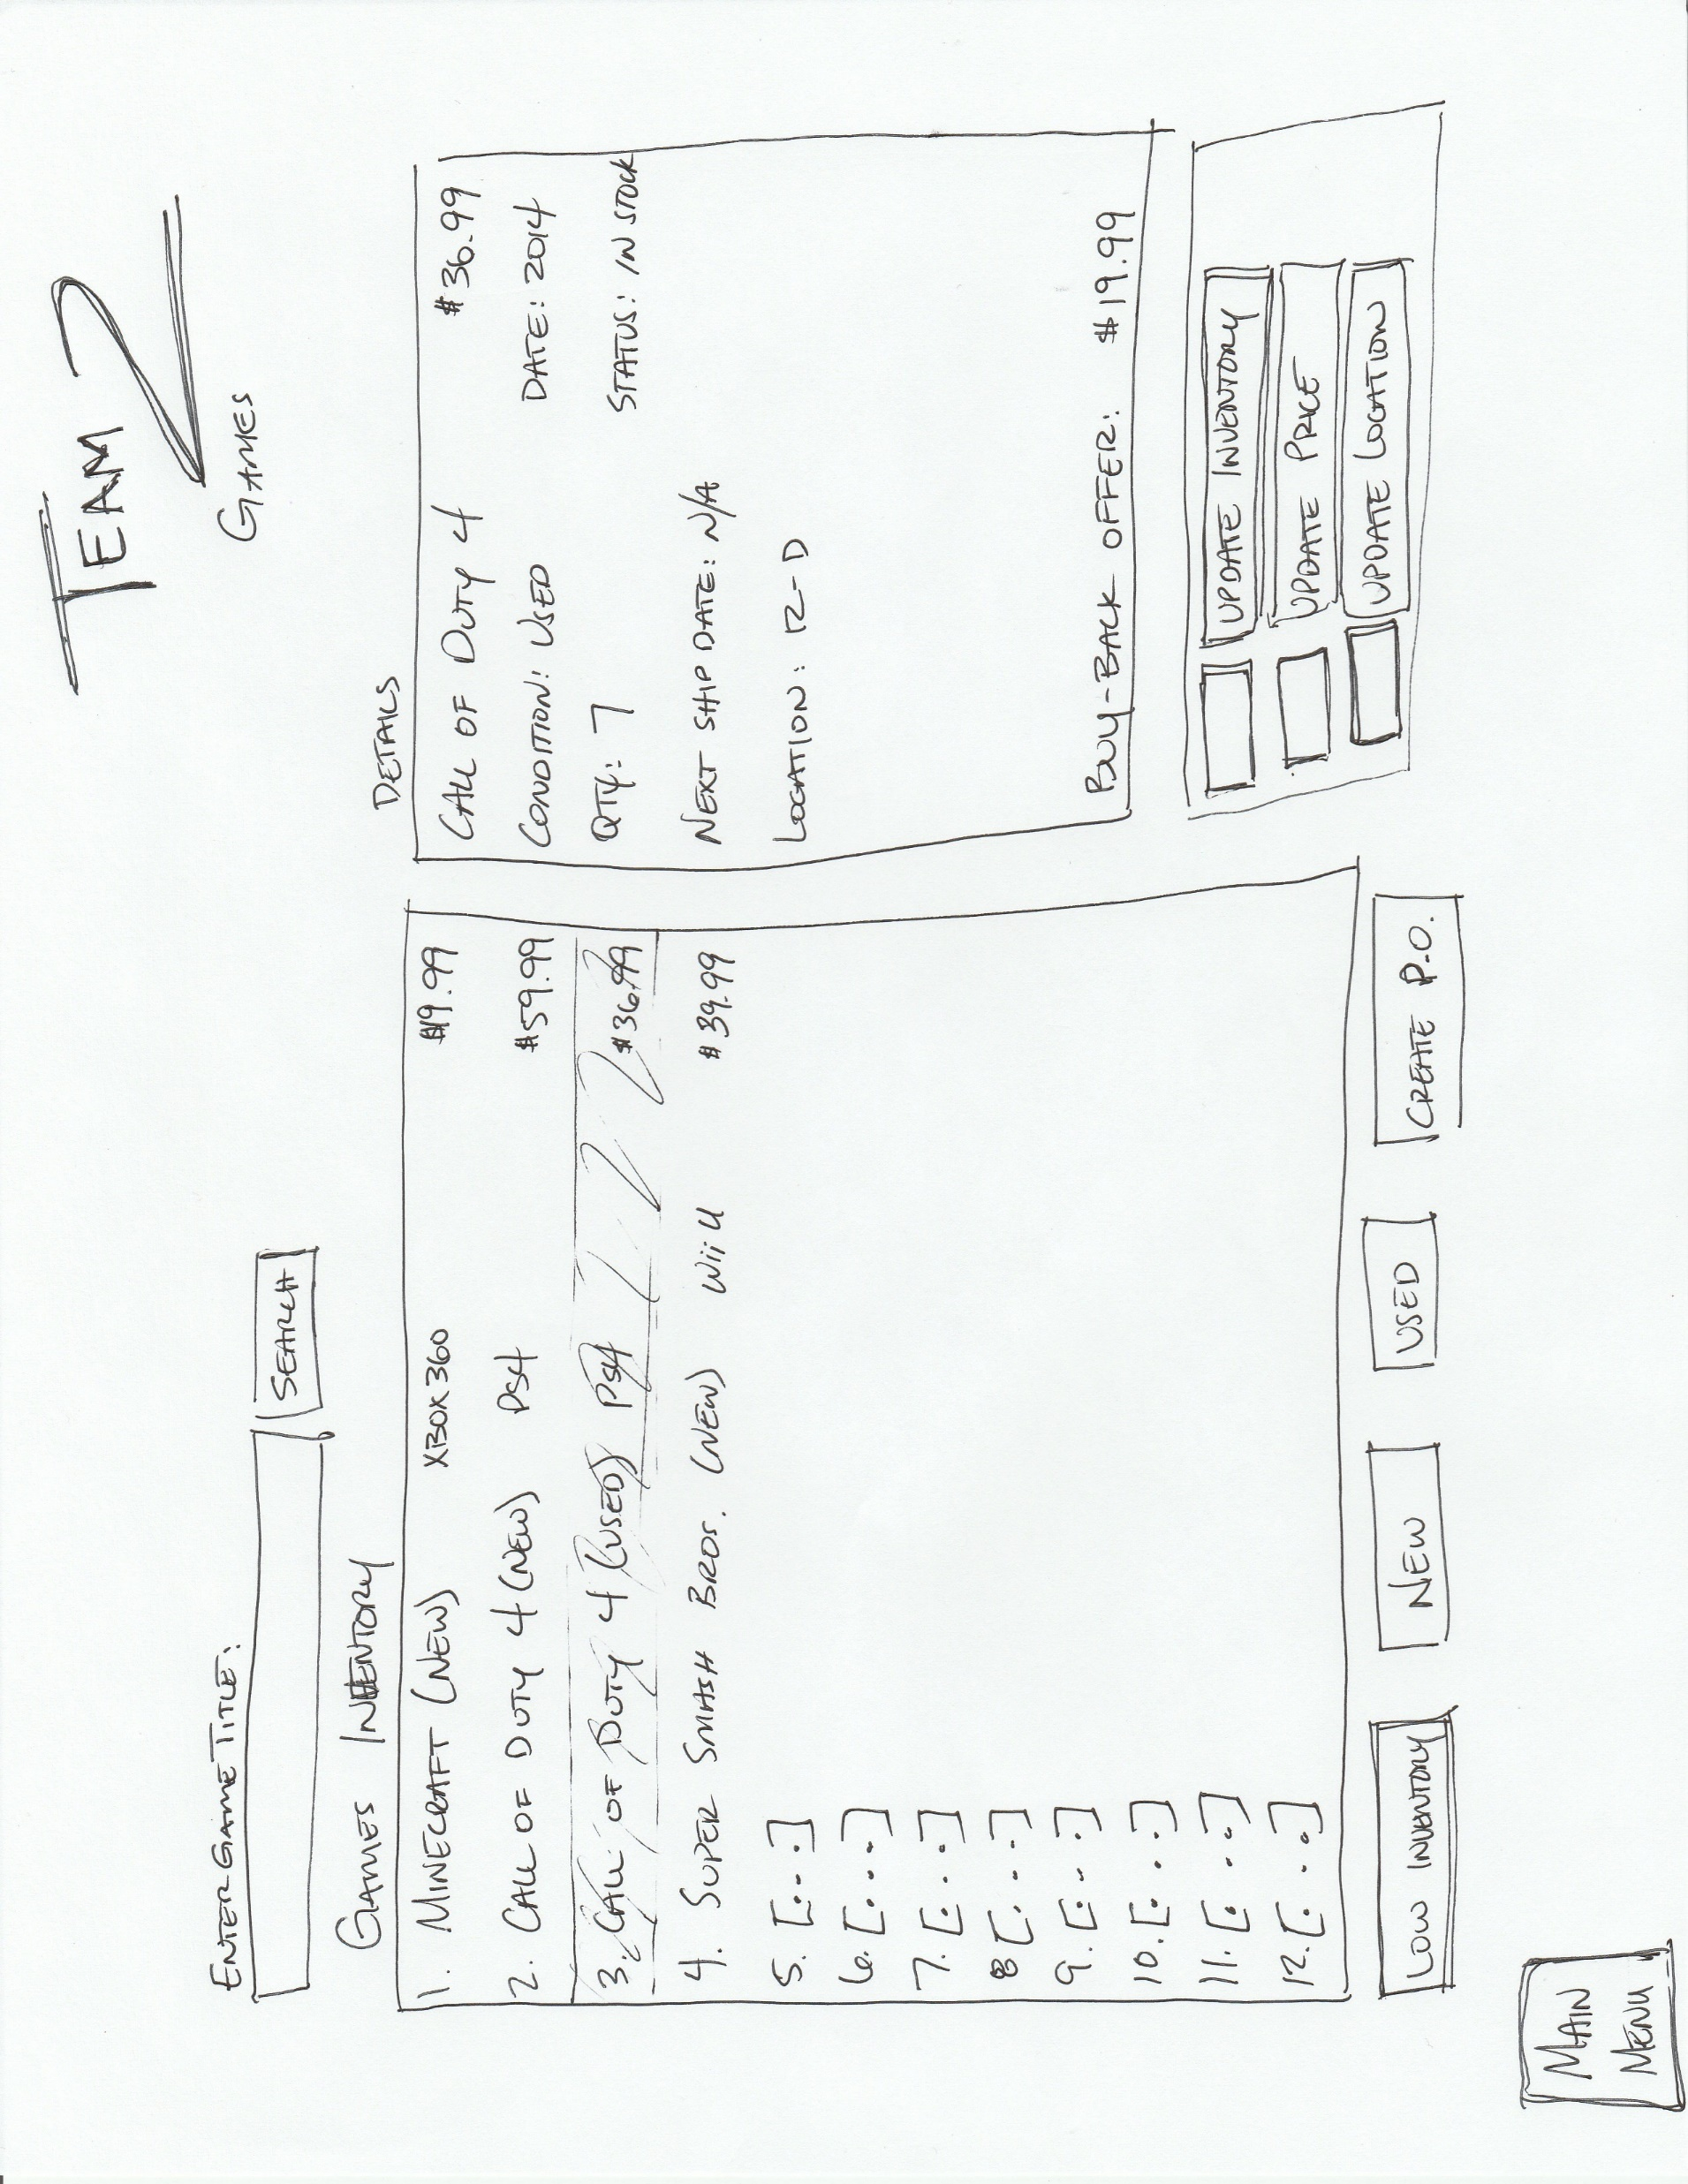 TEAM 2
GAMES
ENTER GAME TITLE:
SEARCH
GAMES INVENTORY
1. MINECRAFT (NEW) XBOX360 $19.99
2. CALL OF DUTY 4 (NEW) PS4 $59.99
3. CALL OF DUTY 4 (USED) PS4 $36.99
4. SUPER SMASH BROS. (NEW) Wii U $39.99
5. [...]
6. [...]
7. [...]
8 [...]
9. [...]
10. [...]
11. [...]
12. [...]
LOW INVENTORY NEW USED CREATE P.O.
MAIN
MENU
DETAILS
CALL OF DUTY 4 $36.99
CONDITION: USED DATE: 2014
QTY: 7 STATUS: IN STOCK
NEXT SHIP DATE: N/A
LOCATION: 12-D
BUY-BACK OFFER: $19.99
UPDATE INVENTORY
UPDATE PRICE
UPDATE LOCATION